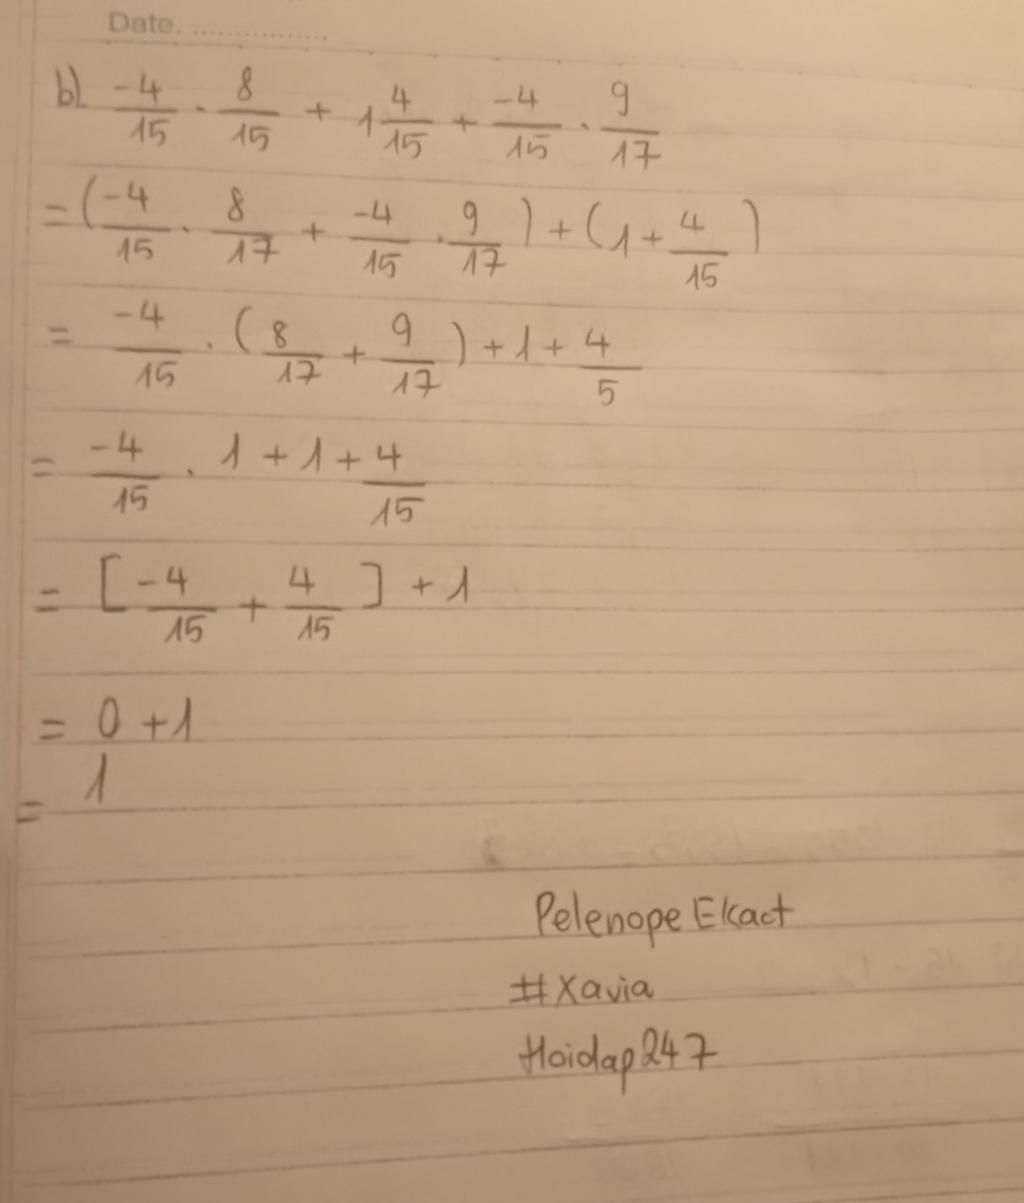 Date. ..............
b) -4/15 . 8/15 + 1 4/15 + -4/15 . 9/17
= (-4/15 . 8/17 + -4/15 . 9/17) + (1 + 4/15)
= -4/15 . (8/17 + 9/17) + 1 + 4/5
= -4/15 . 1 + 1 + 4/15
= [-4/15 + 4/15] + 1
= 0 + 1
= 1
Pelenope Ekact
#Xavia
Hoidap247